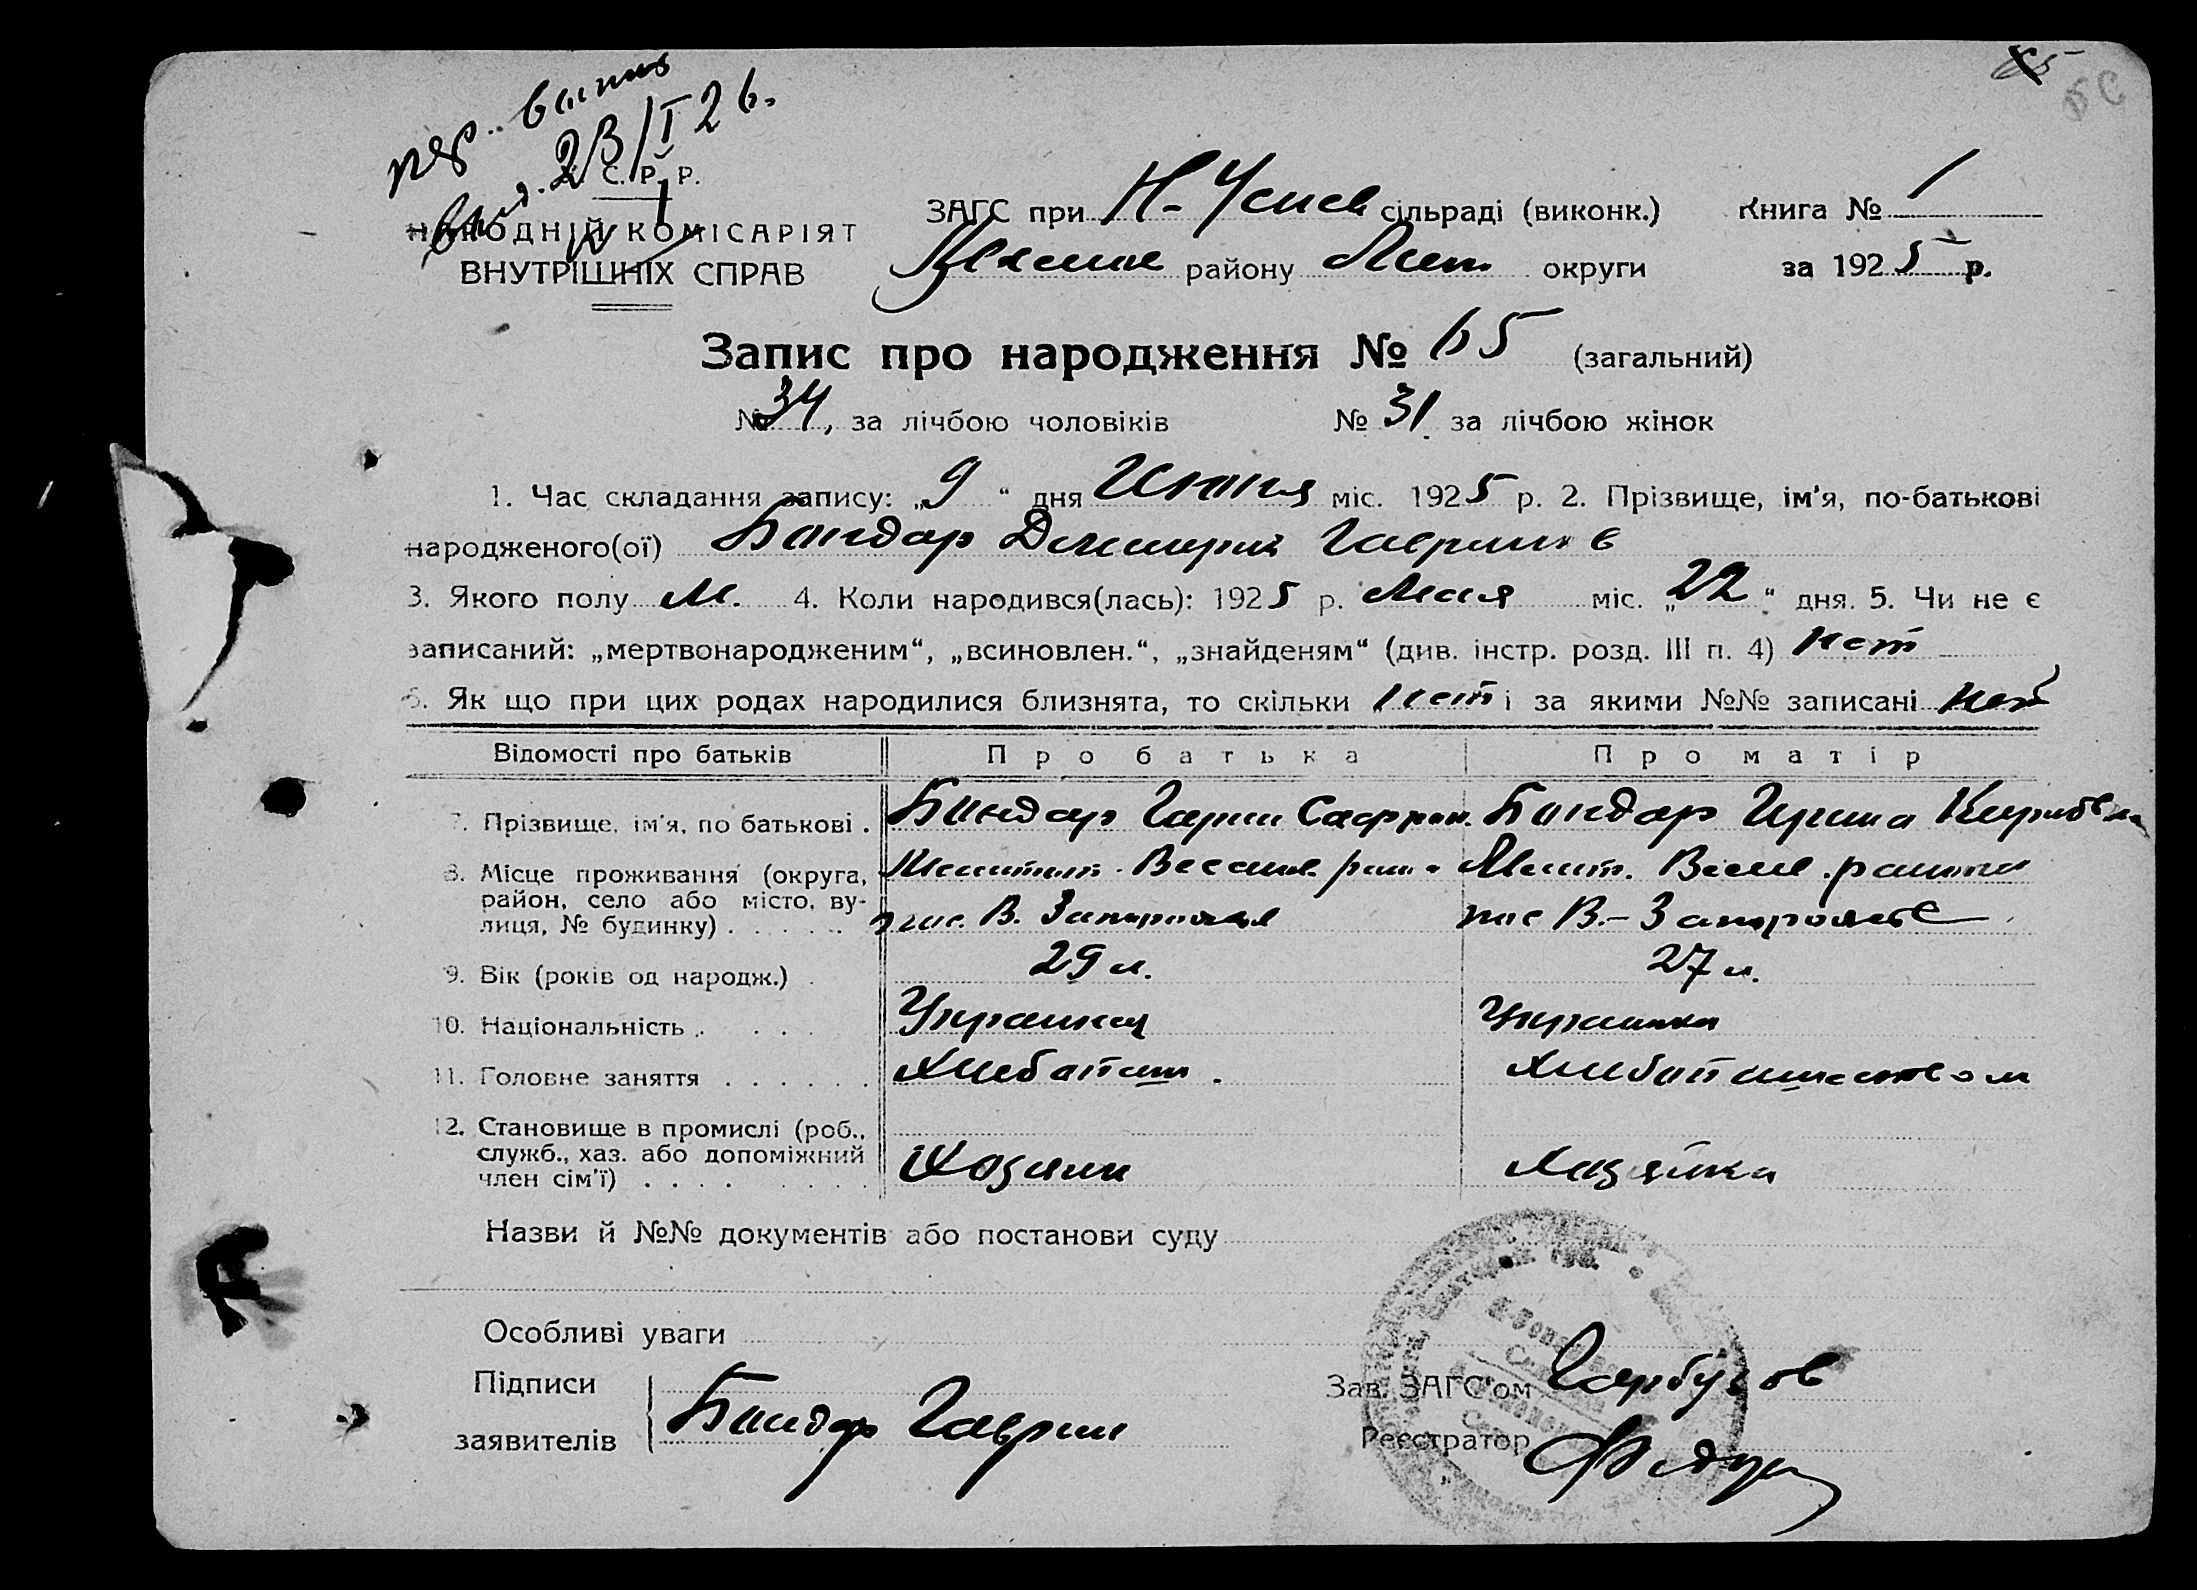 65
23/I 26.
С. Р. Р.
НАРОДНІЙ КОМІСАРІЯТ
ВНУТРІШНІХ СПРАВ
ЗАГС при сільраді (виконк.) Книга № 1
району Мелит. округи за 1925 р.
Запис про народження № 65 (загальний)
№ 34, за лічбою чоловіків № 31 за лічбою жінок
1. Час складання запису: „9“ дня Июня міс. 1925 р. 2. Прізвище, ім'я, по-батькові
народженого(ої) Бондар Дмитрий Гаврилов
3. Якого полу М. 4. Коли народився(лась): 1925 р. Мая міс. „22“ дня. 5. Чи не є
записаний: „мертвонародженим“, „всиновлен.“, „знайденям“ (див. інстр. розд. III п. 4) нет
6. Як що при цих родах народилися близнята, то скільки нет і за якими №№ записані нет
Відомості про батьків Про батька Про матір
7. Прізвище, ім'я, по батькові . Бондар Сафрон. Бондар Ирина
8. Місце проживання (округа, район, село або місто, вулиця, № будинку) . . . . . Мелит. района
В. Запорожья В.-Запорожье
9. Вік (років од народж.) . 29 л. 27 л.
10. Національність . . . . Украинец Украинка
11. Головне заняття . . . . . . Хлебопаш. Хлебопашеством
12. Становище в промислі (роб., служб., хаз. або допоміжний член сім'ї) . . . . . . . . Хозяин Хозяйка
Назви й №№ документів або постанови суду
Особливі уваги
Підписи заявителів Бондар Гаврил
Зав. ЗАГС'ом Гарбузов
Реєстратор